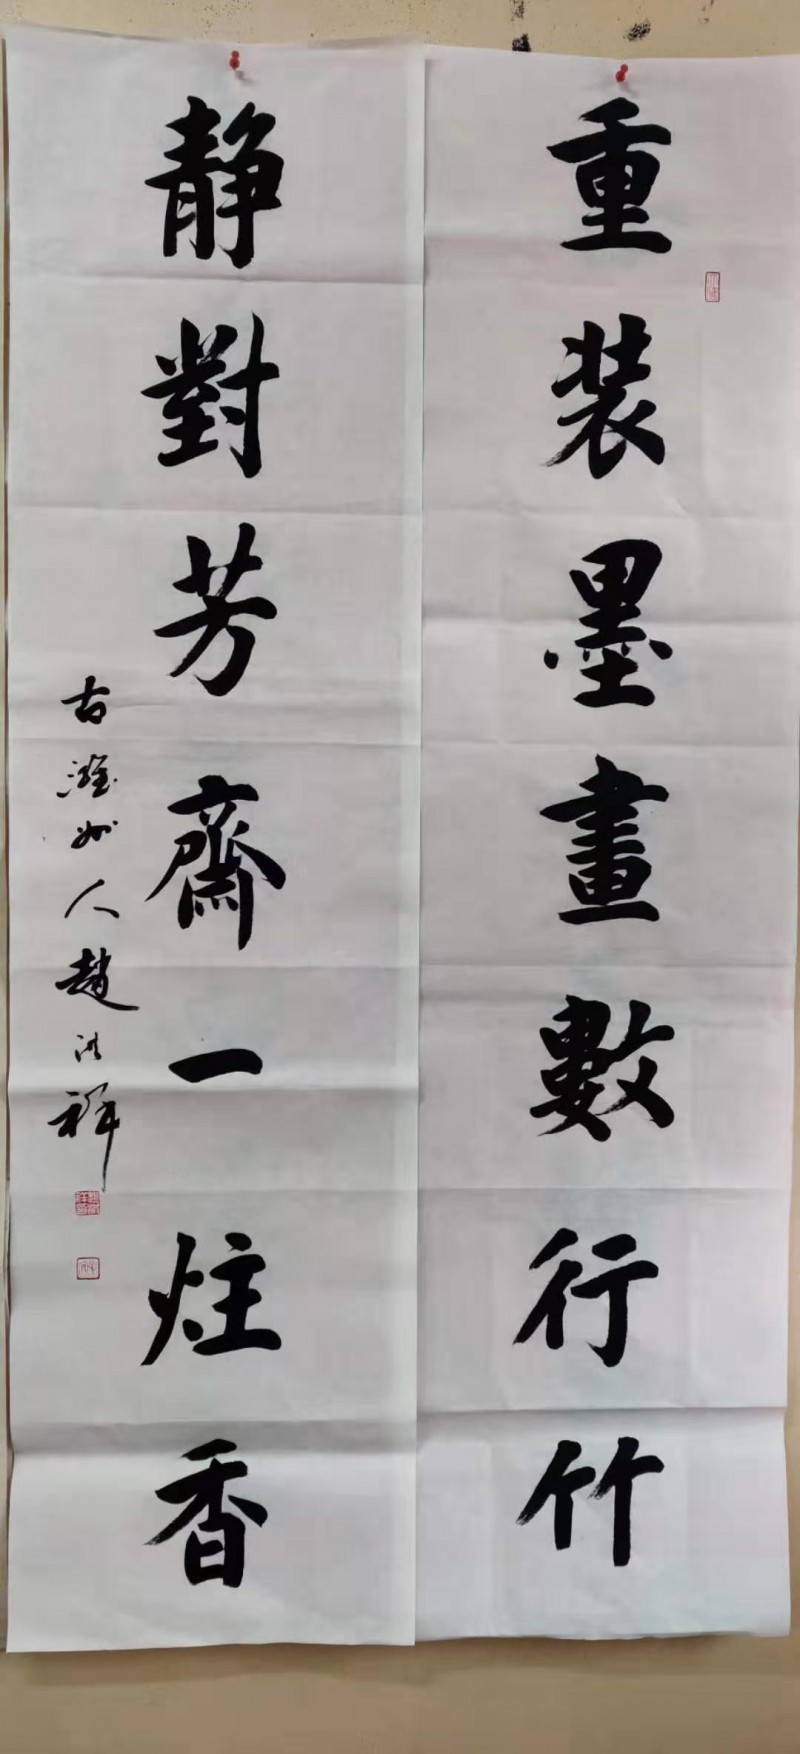 重装墨畫數行竹
静對芳齋一炷香
古濰州人趙洪祥